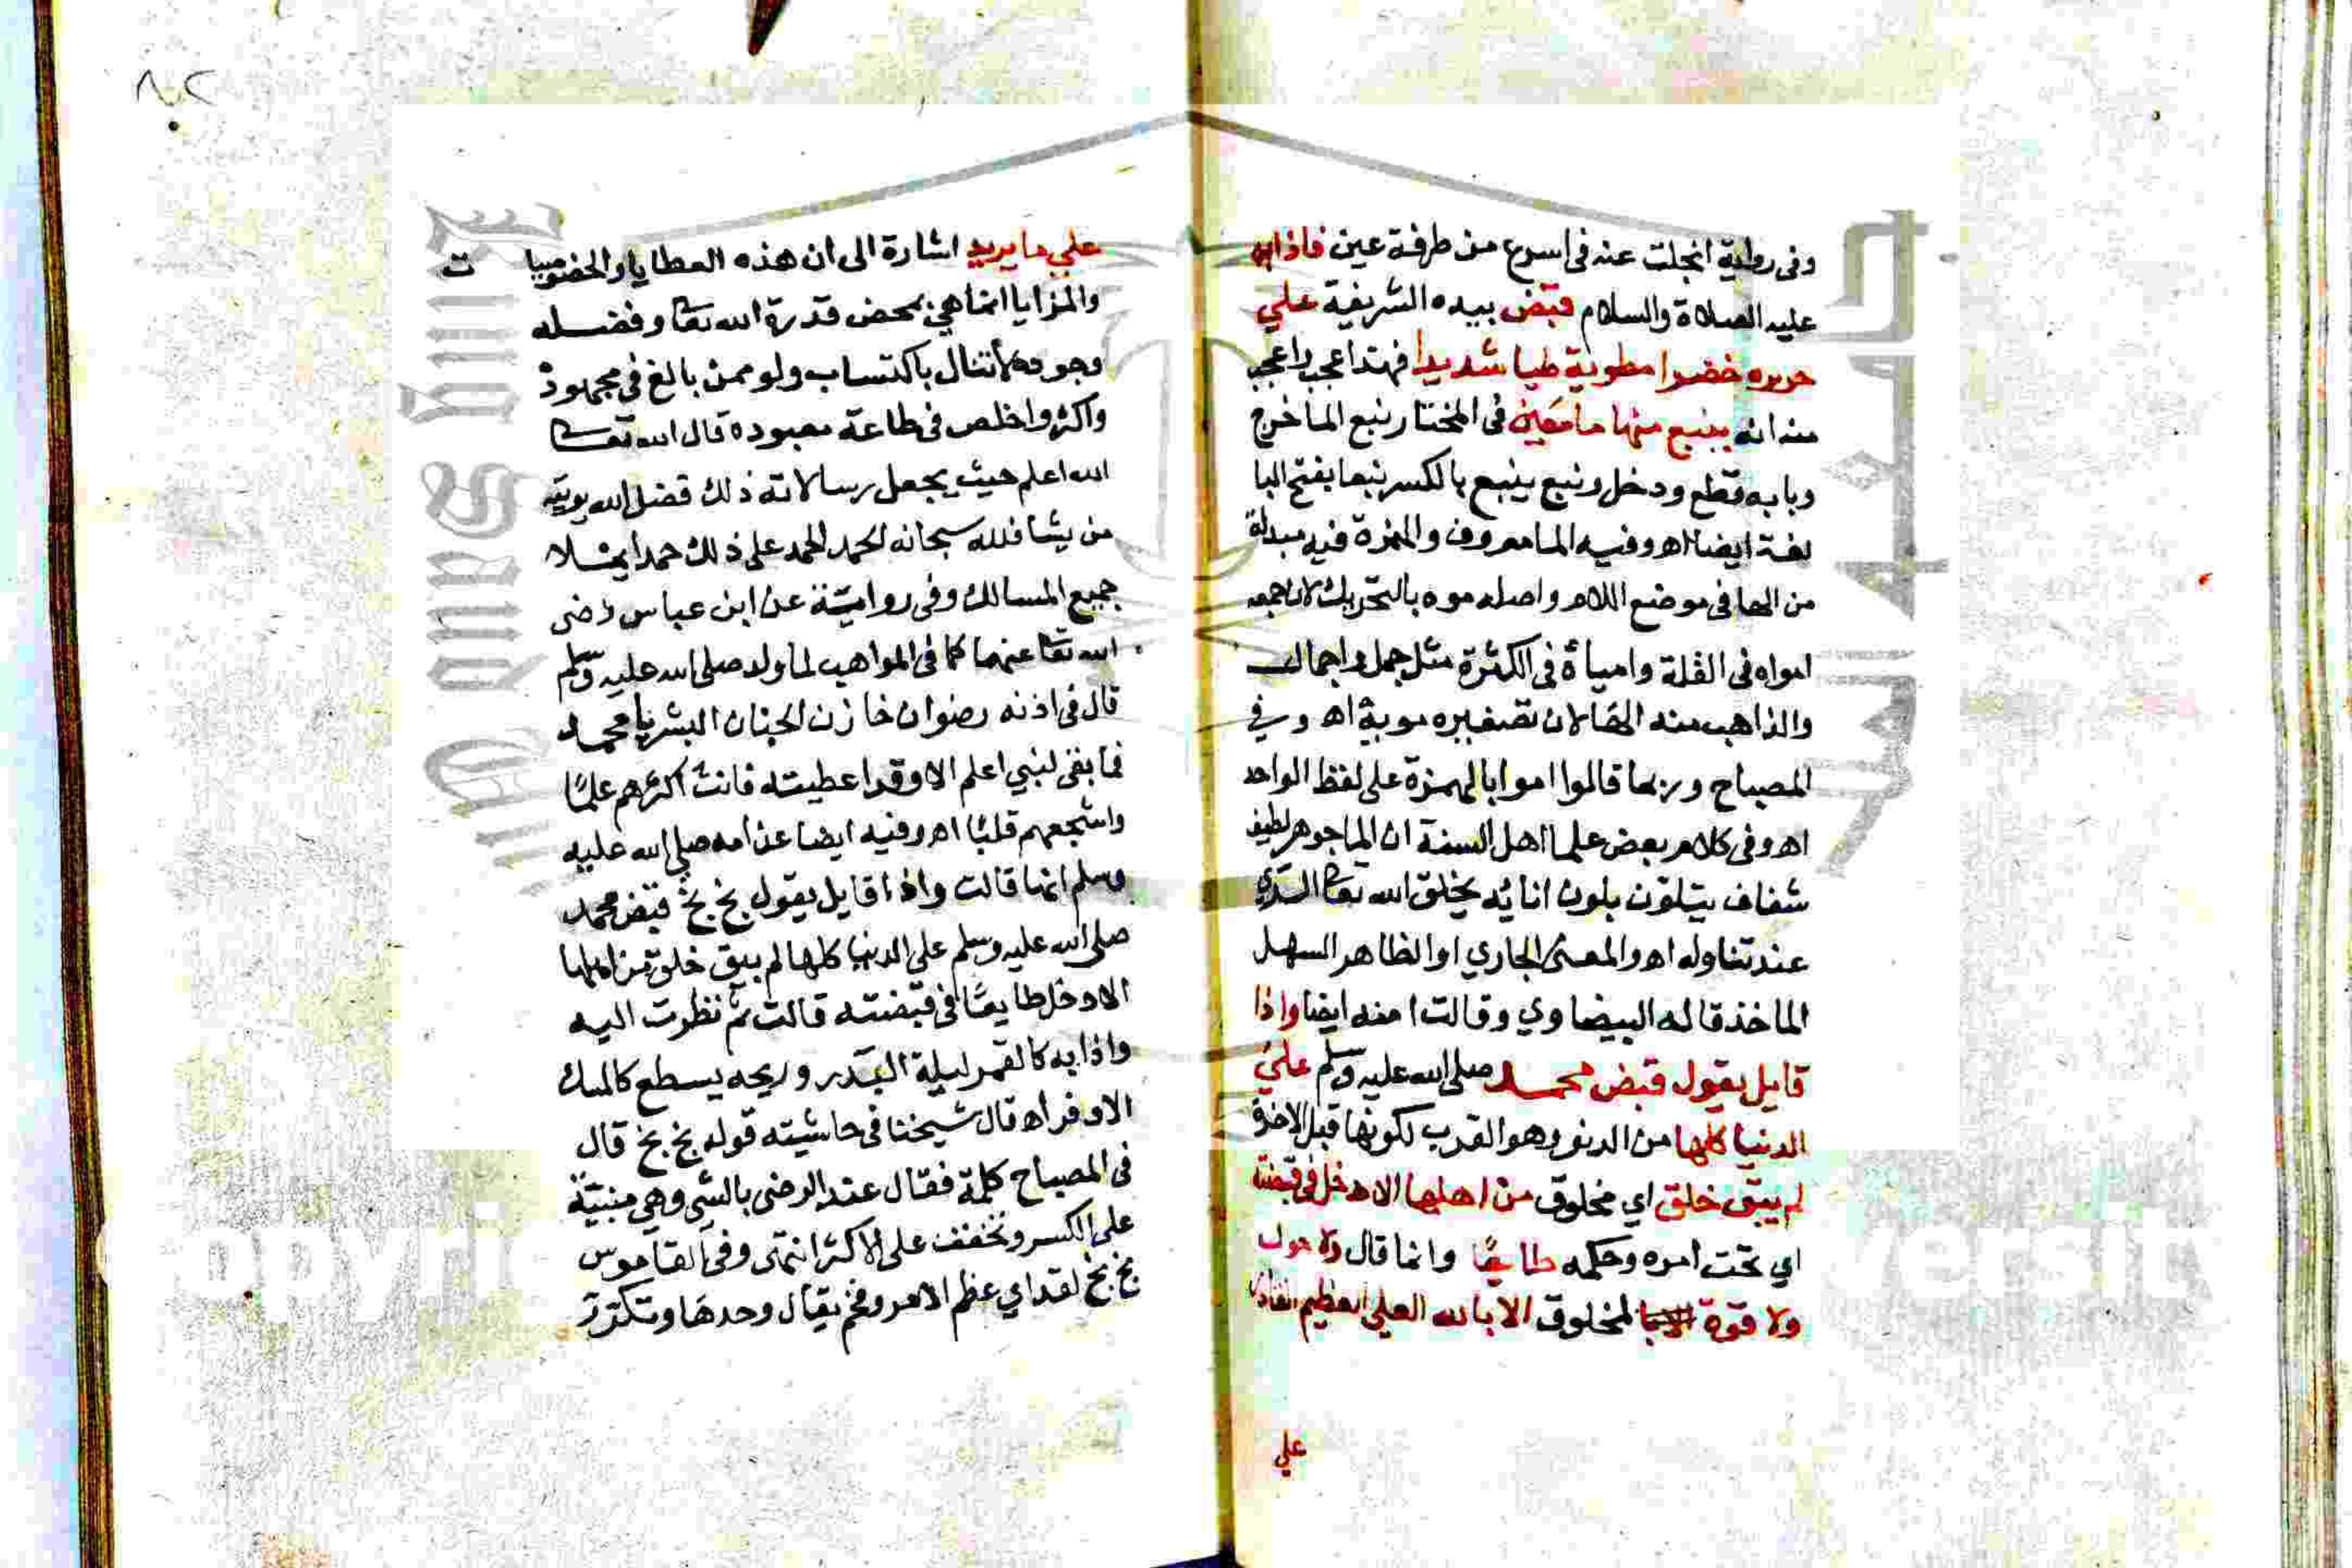 وفى رواية انجلت عنه فى اسرع من طرفة عين فاذا به
عليه الصلاة والسلام قبض بيده الشريفة علي
حريره خضرا مطوية طيا شديدا فهتدا عجب واعجب
منه انه ينبع منها ما معين فى المختار نبع الما خرج
وبابه قطع ودخل ونبع ينبع بالكسر نبعا بفتح البا
لغة ايضا اه وفيه الما معروف والهمزة فيه مبدلة
من الها فى موضع اللام واصله موه بالتحريك لان جمعه
امواه فى القلة وامياة فى الكثرة مثل جمل واجمال
والذاهب منه الها لان تصغيره مويه اه وفي
المصباح وربما قالوا امواء بالهمزة على لفظ الواحد
اه وفى كلام بعض علما اهل السنة ان الما جوهر لطيف
شفاف يتلون بلون انائه يخلق الله تعا الري
عند تناوله اه والمعنى الجاري او الظاهر السهل
الماخذ قاله البيضاوي وقالت امنه ايضا واذا
قايل يقول قبض محمد صلى الله عليه وسلم علي
الدنيا كلها من الدنو وهو القرب لكونها قبل الاخرة
لم يبقى خلق اي مخلوق من اهلها الا دخل فى قبضته
اي تحت امره وحكمه طايعًا وانما قال ولا حول
ولا قوة لمخلوق الا بالله العلي العظيم
علي
علي ما يريد اشارة الى ان هذه العطايا والخصوصيات
والمزايا انما هي بمحض قدرة الله تعا وفضله
وجوده لا تنال باكتساب ولو ممن بالغ فى مجهوده
واكثر واخلص فى طاعة معبوده قال الله تعا
الله اعلم حيث يجعل رسالاته ذلك فضل الله يوتيه
من يشا فلله سبحانه الحمد الحمد على ذلك حمدا يملا
جميع المسالك وفى رواية عن ابن عباس رضى
الله تعا عنهما كما فى المواهب لما ولد صلى الله عليه وسلم
قال فى اذنه رضوان خازن الجنان ابشر يا محمد
فما بقى لنبي اعلم الا وقد اعطيته فانت اكثرهم علمًا
واشجعهم قلبًا اه وفيه ايضا عن امه صلى الله عليه
وسلم انها قالت واذا قايل يقول بخ بخ قبض محمد
صلى الله عليه وسلم على الدنيا كلها لم يبق خلق من اهلها
الا دخل طايعًا فى قبضته قالت ثم نظرت اليه
واذا به كالقمر ليلة البدر وريحه يسطع كالمسك
الاذفر اه قال شيخنا فى حاشيته قوله بخ بخ قال
فى المصباح كلمة فقال عند الرضى بالشي وهي مبنية
على الكسر وتخفف على الاكثر انتهى وفى القاموس
بخ بخ لقد اي عظم الامر وفخم يقال وحدها وتكرر